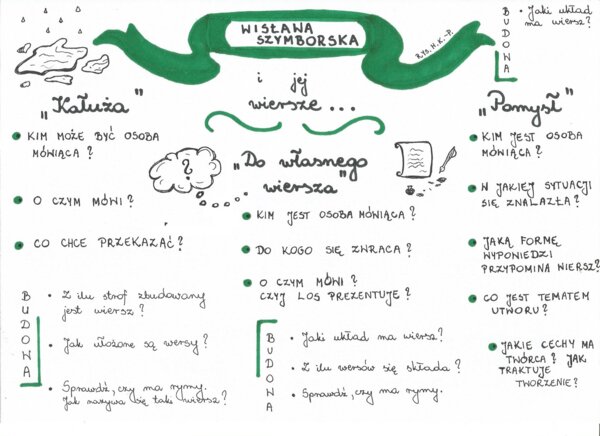 WISŁAWA
SZYMBORSKA
RYS. N.K.-P.
i jej
wiersze...
„Kałuża”
KIM MOŻE BYĆ OSOBA
MÓWIĄCA?
O CZYM MÓWI?
CO CHCE PRZEKAZAĆ?
BUDOWA
• Z ilu strof zbudowany
jest wiersz?
• Jak ułożone są wersy?
• Sprawdź, czy ma rymy.
Jak nazywa się taki wiersz?
?
„Do własnego
wiersza”
KIM JEST OSOBA MÓWIĄCA?
DO KOGO SIĘ ZWRACA?
O CZYM MÓWI?
CZYJ LOS PREZENTUJE?
BUDOWA
• Jaki układ ma wiersz?
• Z ilu wersów się składa?
• Sprawdź, czy ma rymy.
BUDOWA
• Jaki układ
ma wiersz?
„Pomysł”
KIM JEST OSOBA
MÓWIĄCA?
W JAKIEJ SYTUACJI
SIĘ ZNALAZŁA?
JAKĄ FORMĘ
WYPOWIEDZI
PRZYPOMINA WIERSZ?
CO JEST TEMATEM
UTWORU?
JAKIE CECHY MA
TWÓRCA? JAK
TRAKTUJE
TWORZENIE?